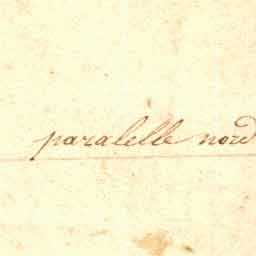 paralelle nord